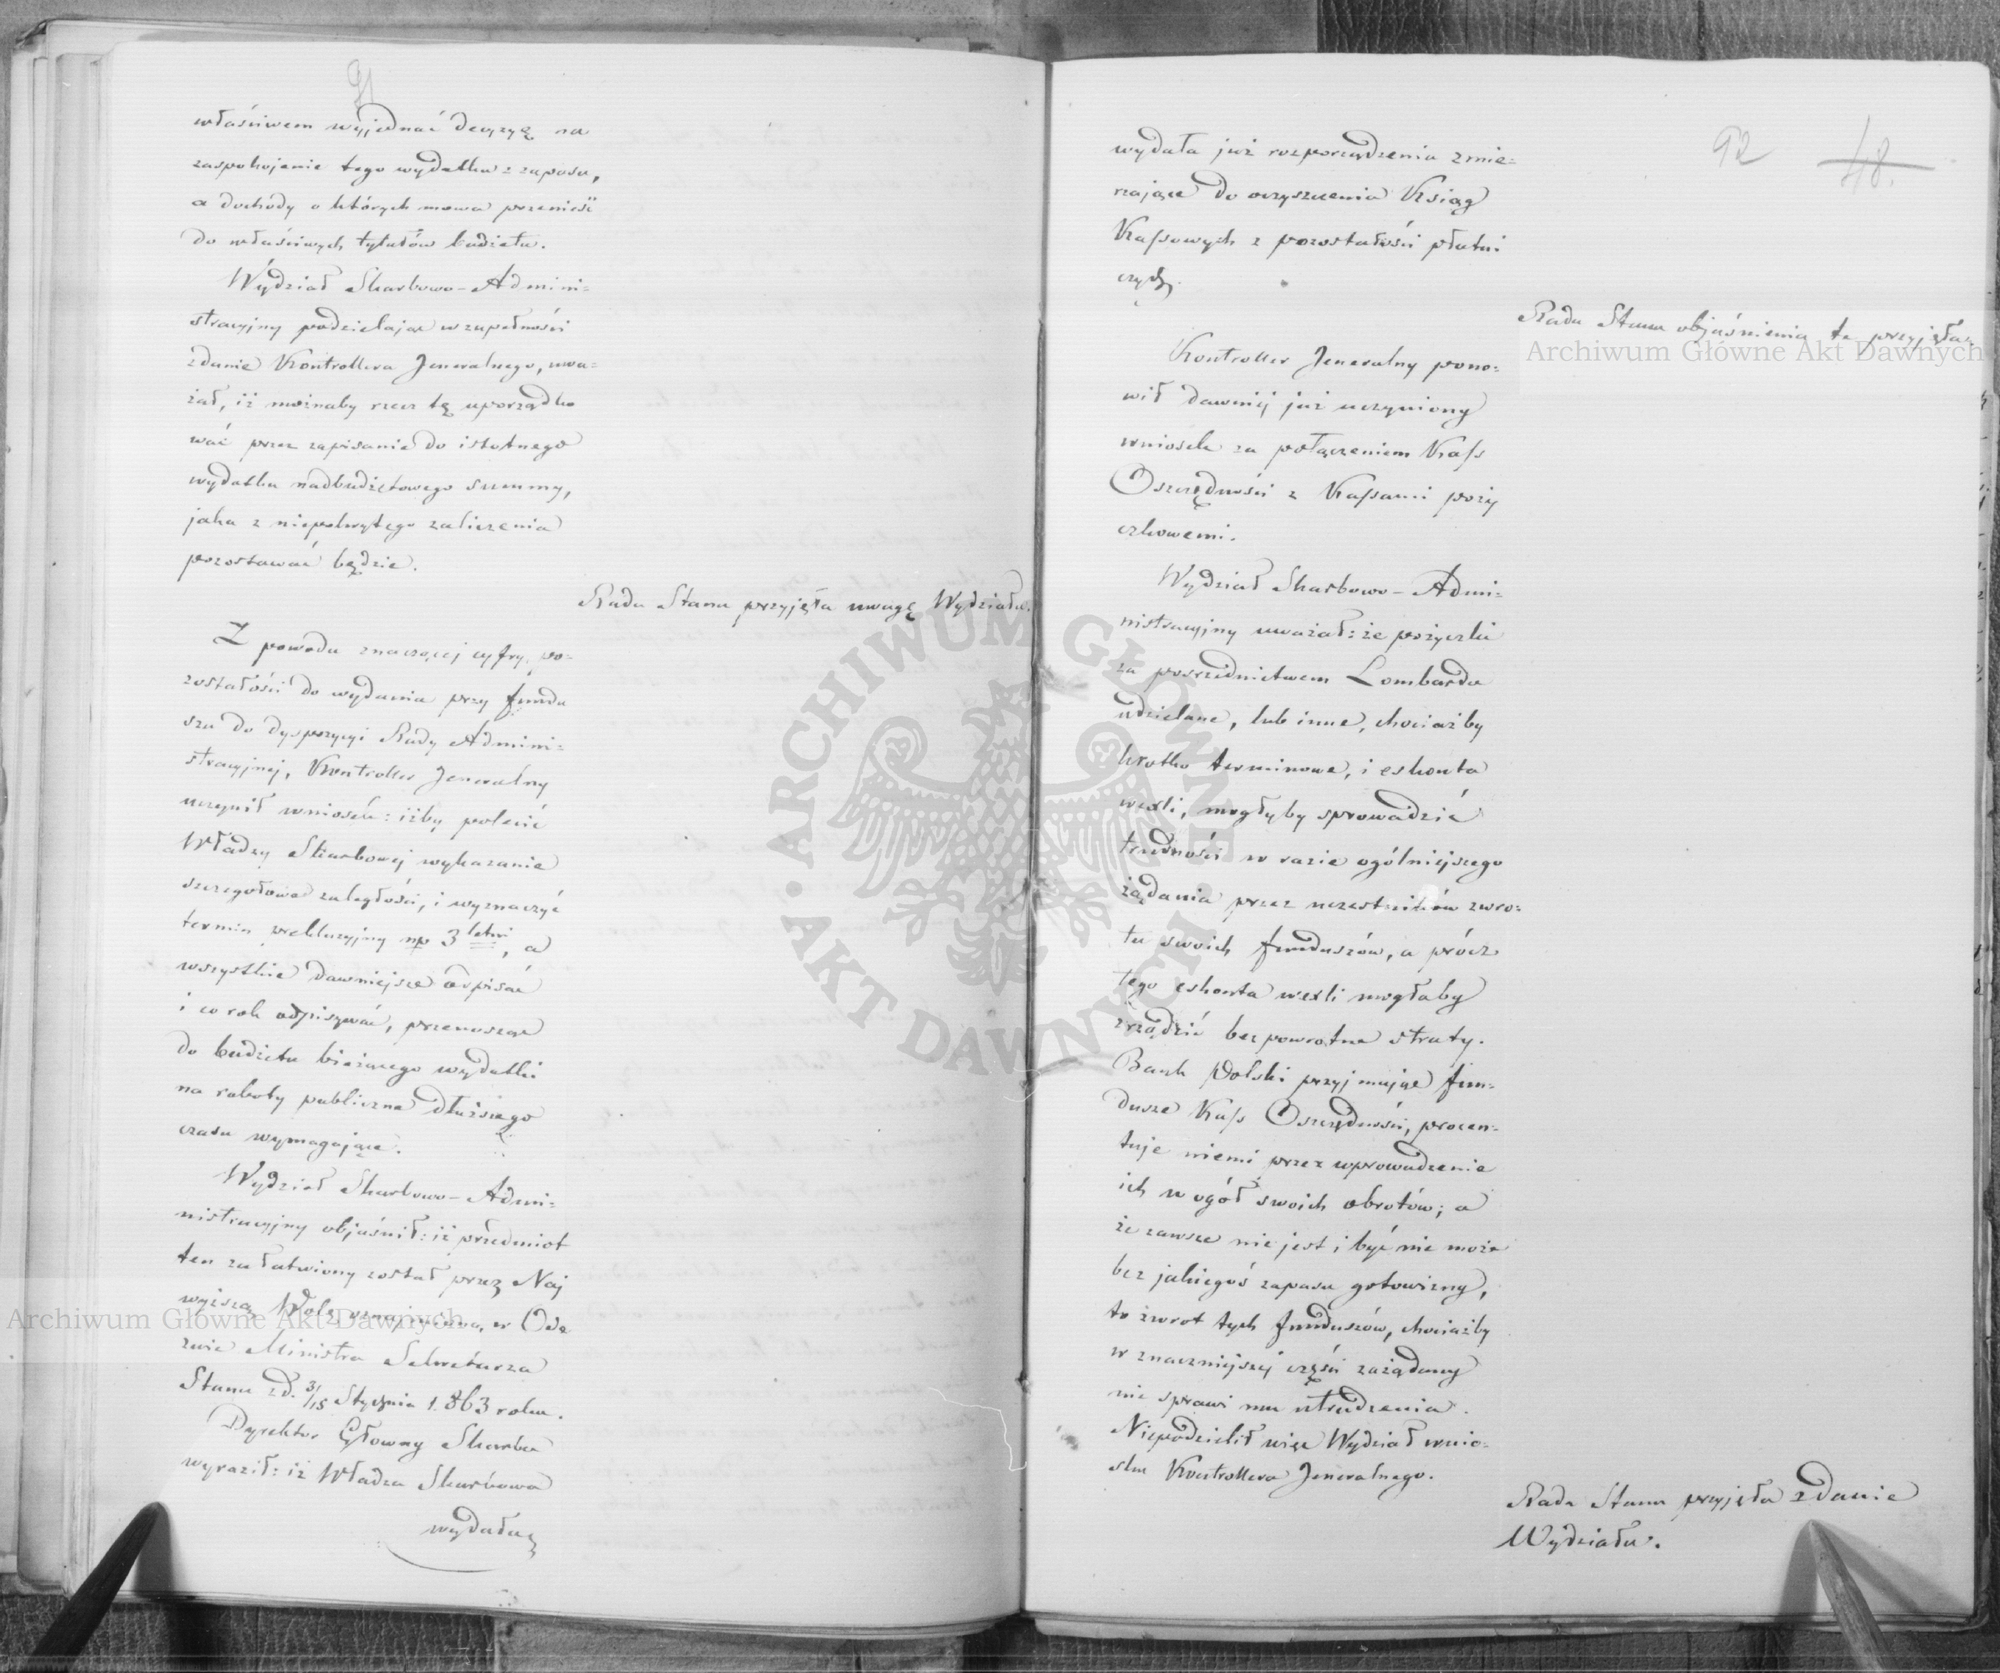 91
właściwem wyjednać decyzyą na
zaspokojenie tego wydatku z zapasu,
a dochody o których mowa przenieść
do właściwych tytułów budżetu.
Wydział Skarbowo-Admini=
stracyjny podzielając w zupełności
zdanie Kontrollera Jeneralnego, uwa=
żał, iż możnaby rzecz tę uporządko
wać przez zapisanie do istotnego
wydatku nadbudżetowego summy,
jaka z niepokrytego zaliczenia
pozostawać będzie.
Rada Stanu przyjęła uwagę Wydziału.
Z powodu znaczącej cyfry, po=
zostałości do wydania przy fundu
szu do dyspozycyi Rady Admini=
stracyjnej, Kontroller Jeneralny
uczynił wniosek: iżby polecić
Władzy Skarbowej wykazanie
szczegołowe zaległości, i wyznaczyć
termin prekluzyjny np 3 letni, a
wszystkie dawniejsze odpisać
i co rok odpisywać, przenosząc
do budżetu bieżącego wydatki
na roboty publiczne dłuższego
czasu wymagające.
Wydział Skarbowo-Admi=
nistracyjny objaśnił: iż przedmiot
ten załatwiony został przez Naj
wyższą Wolę oznajmioną w Ode
zwie Ministra Sekretarza
Stanu z d. 3/15 Stycznia 1863 roku.
Dyrektor Główny Skarbu
wyraził: iż Władza Skarbowa
wydała
92
48.
wydała już rozporządzenia zmie=
rzające do oczyszczenia Ksiąg
Kassowych z pozostałości płatni
czych.
Rada Stanu objaśnienia te przyjęła.
Kontroller Jeneralny pono=
wił dawniej już uczyniony
wniosek za połączeniem Kass
Oszczędności z Kassami poży
czkowemi.
Wydział Skarbowo-Admi=
nistracyjny uważał: że pożyczki
za pośrednictwem Lombardu
udzielane, lub inne, chociażby
krótko terminowe, i eskonta
wexli, mogłyby sprowadzić
trudności w razie ogólniejszego
żądania przez uczestników zwro=
tu swoich funduszów, a prócz
tego eskonta wexli mogłaby
zrządzić bezpowrotne straty.
Bank Polski przyjmując fun=
dusze Kass Oszczędności, procen=
tuje niemi przez wprowadzenie
ich w ogół swoich obrotów; a
że zawsze nie jest i być nie może
bez jakiegoś zapasu gotowizny,
to zwrot tych funduszów, chociażby
w znaczniejszej części zażądany
nie sprawi mu utrudzenia.
Niepodzielił więc Wydział wnio=
sku Kontrollera Jeneralnego.
Rada Stanu przyjęła zdanie
Wydziału.
Archiwum Główne Akt Dawnych
Archiwum Główne Akt Dawnych
ARCHIWUM GŁÓWNE
AKT DAWNYCH